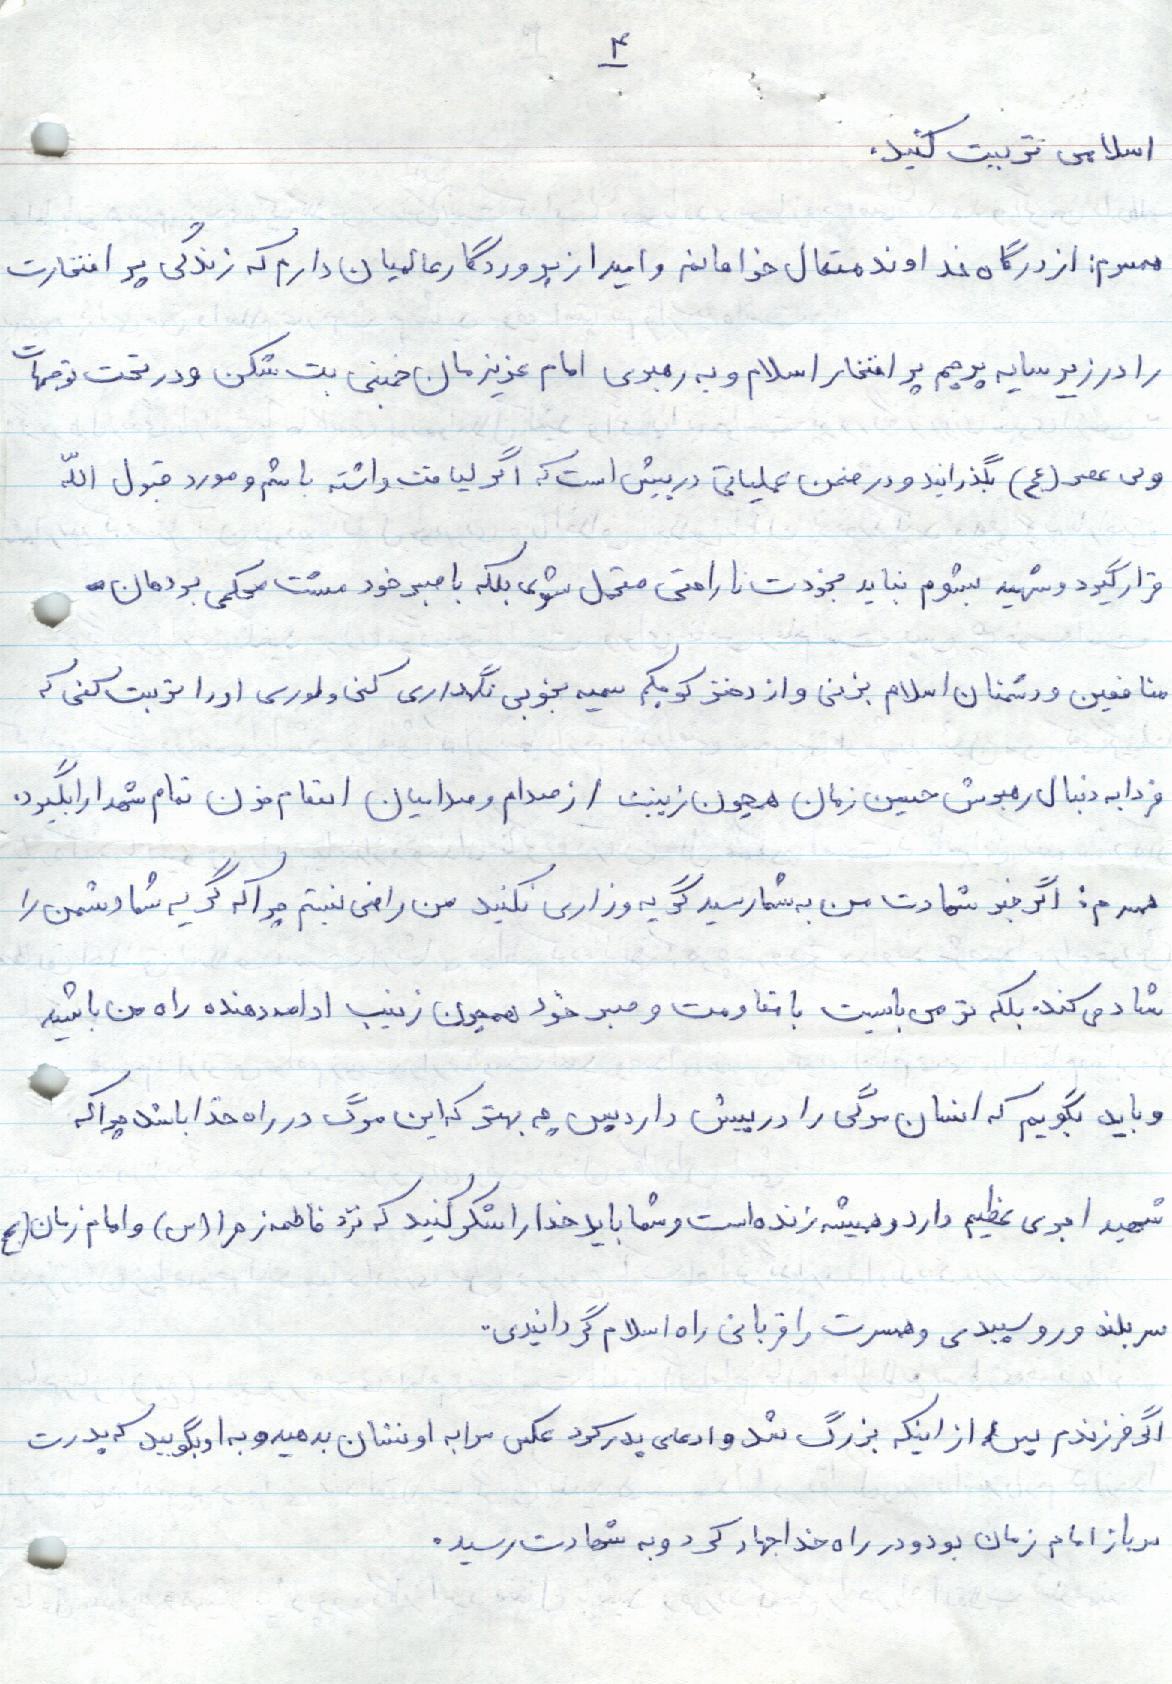 ۴
اسلامی تربیت کنید.
همسرم: از درگاه خداوند متعال خواهانم و امید از پروردگار عالمیان دارم که زندگی پر افتخارت
را در زیر سایه پرچم پر افتخار اسلام و به رهبری امام عزیزمان خمینی بت شکن و در تحت توجهات
ولی عصر (عج) بگذراند و در ضمن عملیاتی در پیش است که اگر لیاقت داشته باشم و مورد قبول الله
قرار گیرد و شهید بشوم نباید بخودت ناراحتی متحمل شوی بلکه با صبر خود مشت محکمی بر دهان
منافقین و دشمنان اسلام بزنی و از دختر کوچکم سمیه بخوبی نگهداری کنی و طوری او را تربیت کنی که
فردا به دنبال رهبرش حسین زمان همچون زینب از صدام و صدامیان انتقام خون تمام شهدا را بگیرد.
همسرم: اگر خبر شهادت من به شما رسید گریه و زاری نکنید من راضی نیستم چرا که گریه شما دشمن را
شاد می کند. بلکه تو می بایست با مقاومت و صبر خود همچون زینب ادامه دهنده راه من باشید
و باید بگویم که انسان مرگی را در پیش دارد پس چه بهتر که این مرگ در راه خدا باشد چرا که
شهید اجری عظیم دارد و همیشه زنده است و شما باید خدا را شکر کنید که نزد فاطمه زهرا (س) و امام زمان (عج
سربلند و روسپیدی و همسرت را قربانی راه اسلام گرداندی.
اگر فرزندم پس از اینکه بزرگ شد و ادعای پدر کرد عکس مرا به او نشان بدهید و به او بگویید که پدرت
سرباز امام زمان بود و در راه خدا جهاد کرد و به شهادت رسید.